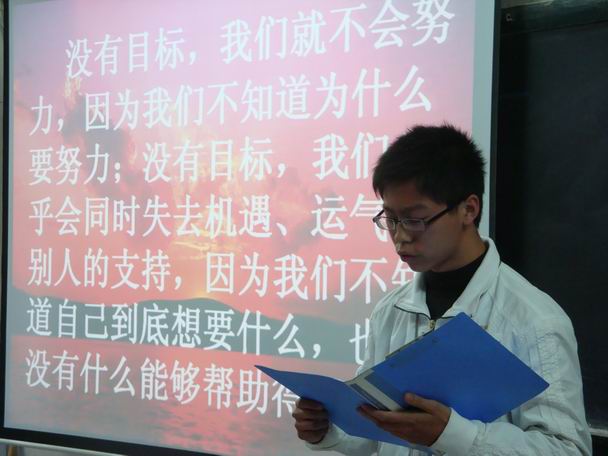 没有目标，我们就不会努
力，因为我们不知道为什么
要努力；没有目标，我们
乎会同时失去机遇、运气
别人的支持，因为我们不知
道自己到底想要什么，也
没有什么能够帮助得